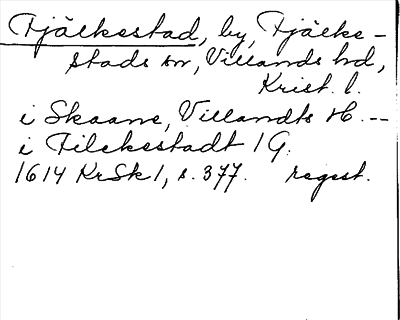 Fjälkestad, by, Fjälke-
stads sn, Villands hd,
Krist. l.
i Skaane, Villandts H. --
i Filckestadt 1 G.
1614 KrSk 1, s. 377. regest.